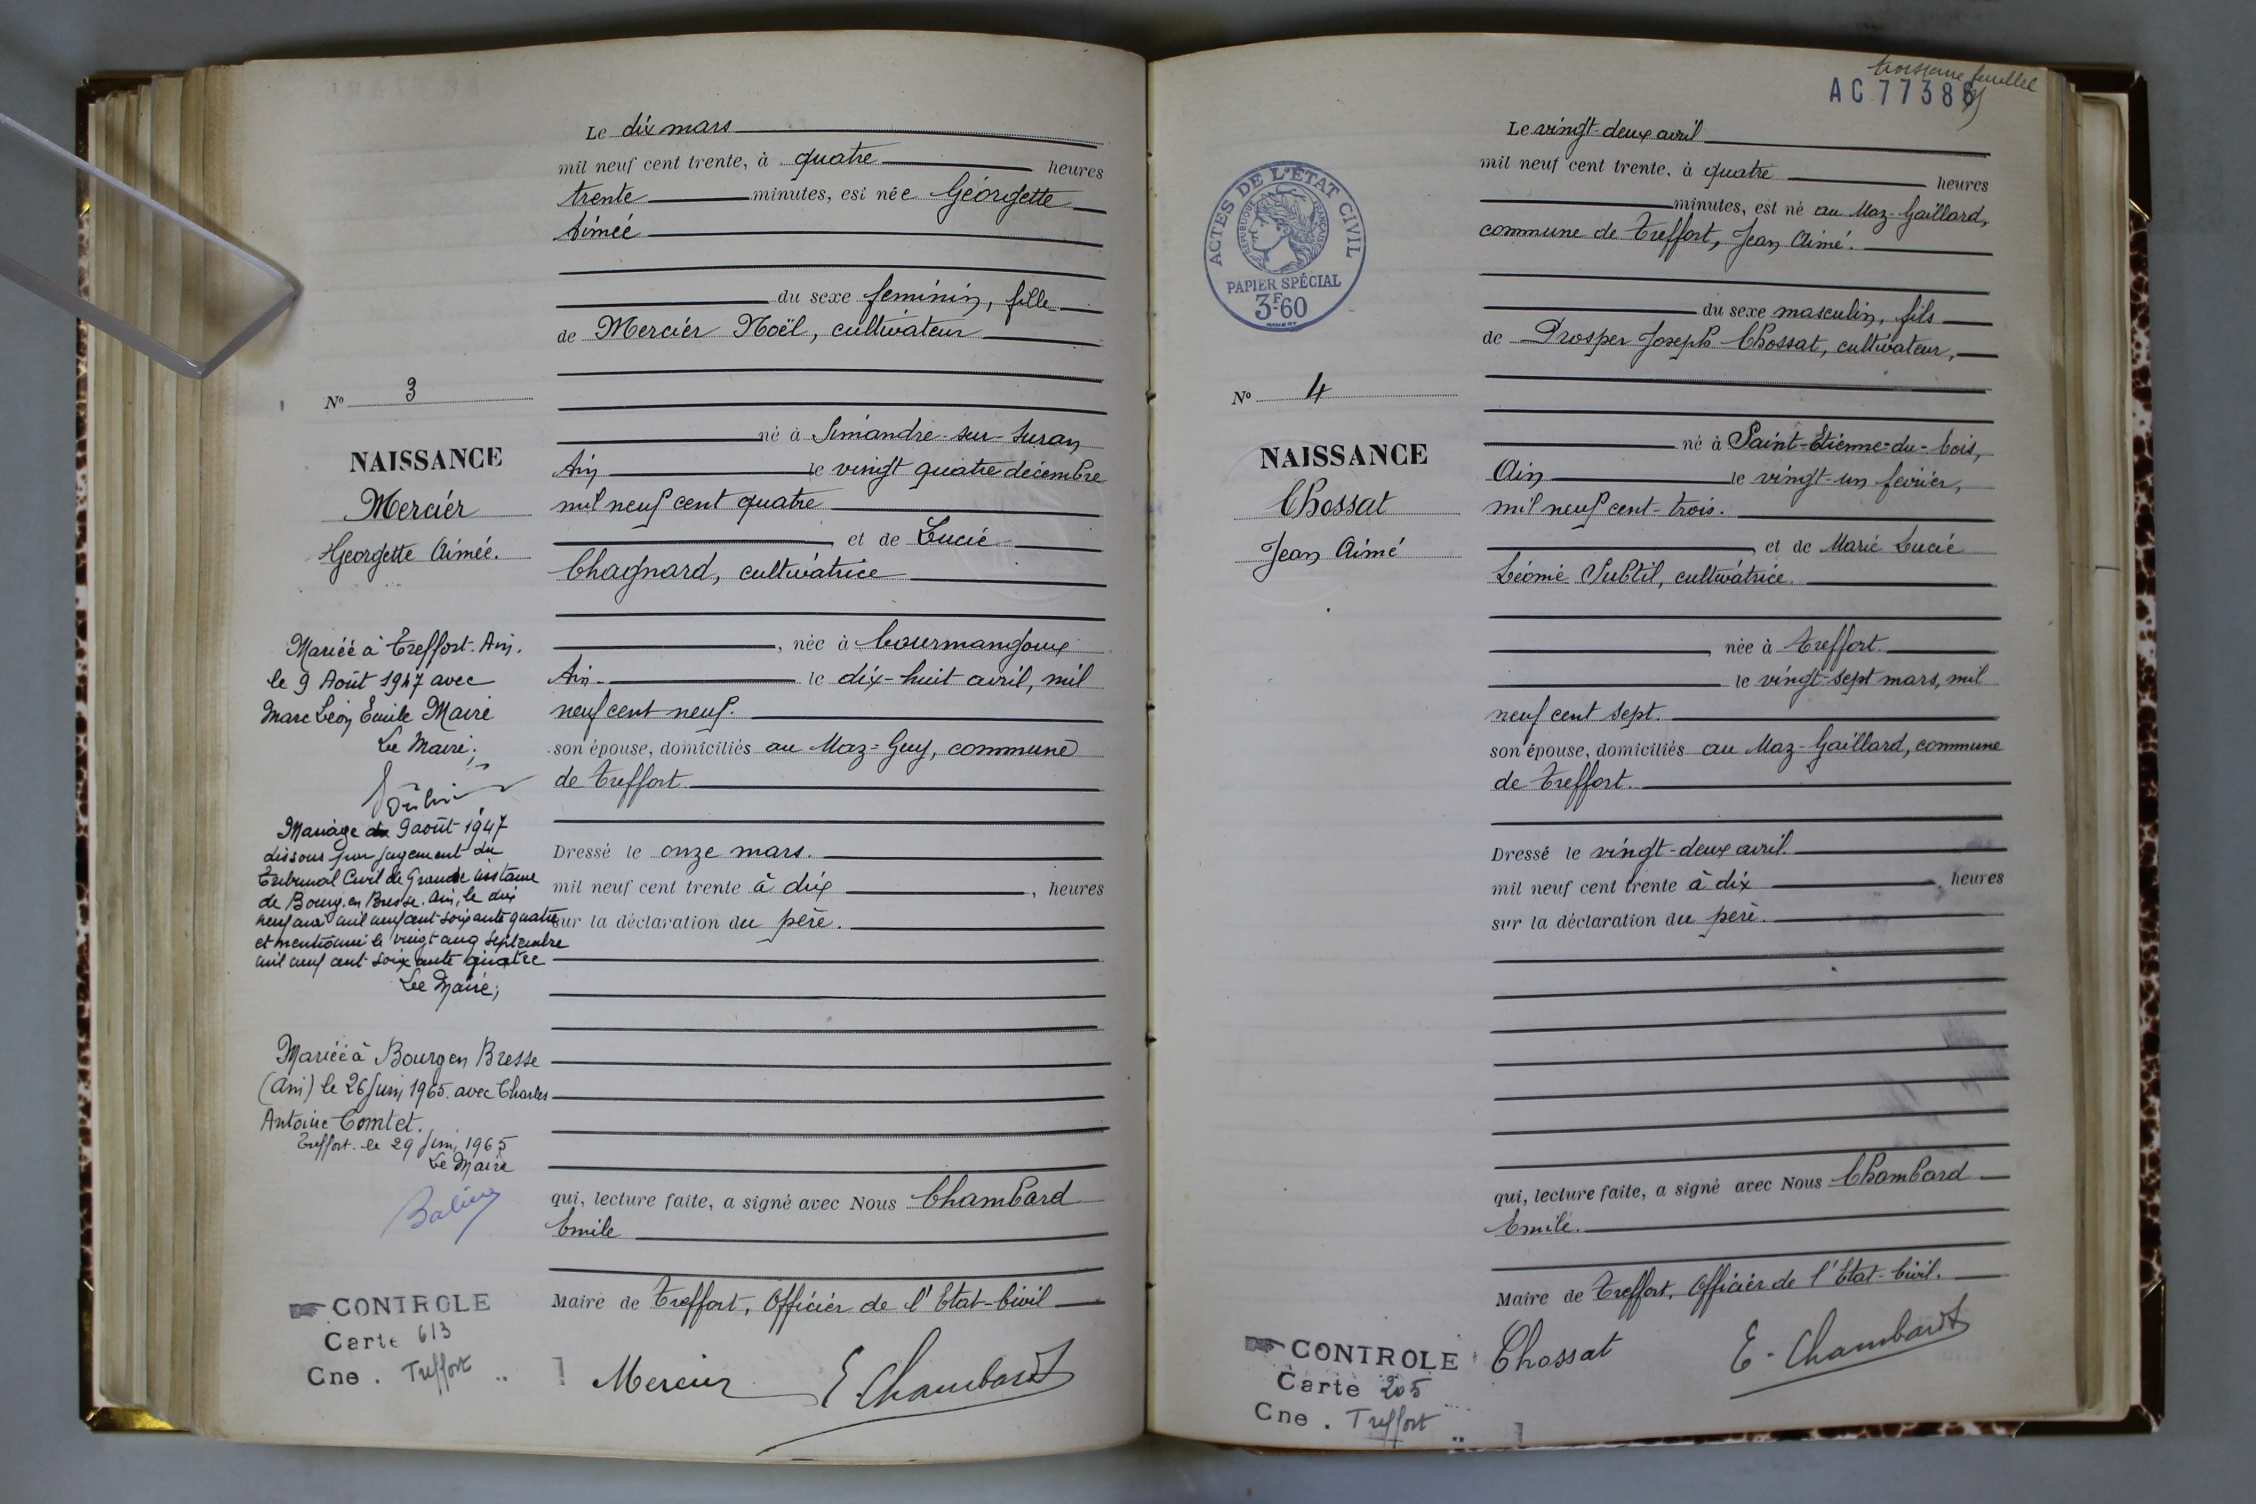 Le dix mars
mil neuf cent trente, à quatre heures
trente minutes, est née Géorgette
Aimée
du sexe feminin, fille
de Mercier Noël, cultivateur
né à Simandre-sur-Suran
Ain le vingt quatre décembre
mil neuf cent quatre
et de Lucie
Chagnard, cultivatrice
, née à Courmangoux
Ain - le dix-huit avril, mil
neuf cent neuf.
son épouse, domiciliés au Maz-Guy, commune
de Treffort.
Dressé le onze mars.
mil neuf cent trente à dix , heures
sur la déclaration du père.
qui, lecture faite, a signé avec Nous Chambard
Emile
Maire de Treffort, Officier de l'Etat-Civil
Mercier E. Chambard
No 3
NAISSANCE
Mercier
Georgette Aimée.
Mariée à Treffort. Ain.
le 9 Août 1947 avec
Marc Léon Emile Maire
Le Maire;
Mariage du 9 août 1947
dissous par jugement du
Tribunal Civil de Grande instance
de Bourg en Bresse. Ain, le dix
neuf mai mil neuf cent soixante quatre
et mentionné le vingt cinq septembre
mil neuf cent soixante quatre
Le Maire;
Mariée à Bourg en Bresse
(Ain) le 26 Juin 1965. avec Charles
Antoine Comtet.
Treffort. le 29 Juin 1965
Le Maire
CONTROLE
Carte 613
Cne . Treffort
troisième feuillet
AC 77388
Le vingt-deux avril
mil neuf cent trente, à quatre heures
minutes, est né au Maz-Gaillard,
commune de Treffort, Jean Aimé.
du sexe masculin, fils
de Prosper Joseph Chossat, cultivateur,
né à Saint-Etienne-du-bois,
Ain le vingt-un février,
mil neuf cent-trois.
, et de Marie Lucie
Léomie Subtil, cultivatrice.
, née à Treffort.
le vingt-sept mars, mil
neuf cent sept.
son épouse, domiciliés au Maz-Gaillard, commune
de Treffort.
Dressé le vingt-deux avril.
mil neuf cent trente à dix , heures
sur la déclaration du père.
qui, lecture faite, a signé avec Nous Chambard
Emile.
Maire de Treffort, Officier de l'Etat-Civil.
Chossat E. Chambard
ACTES DE L'ETAT CIVIL
REPUBLIQUE FRANÇAISE
PAPIER SPÉCIAL
3F60
No 4
NAISSANCE
Chossat
Jean Aimé
CONTROLE
Carte 205
Cne . Treffort